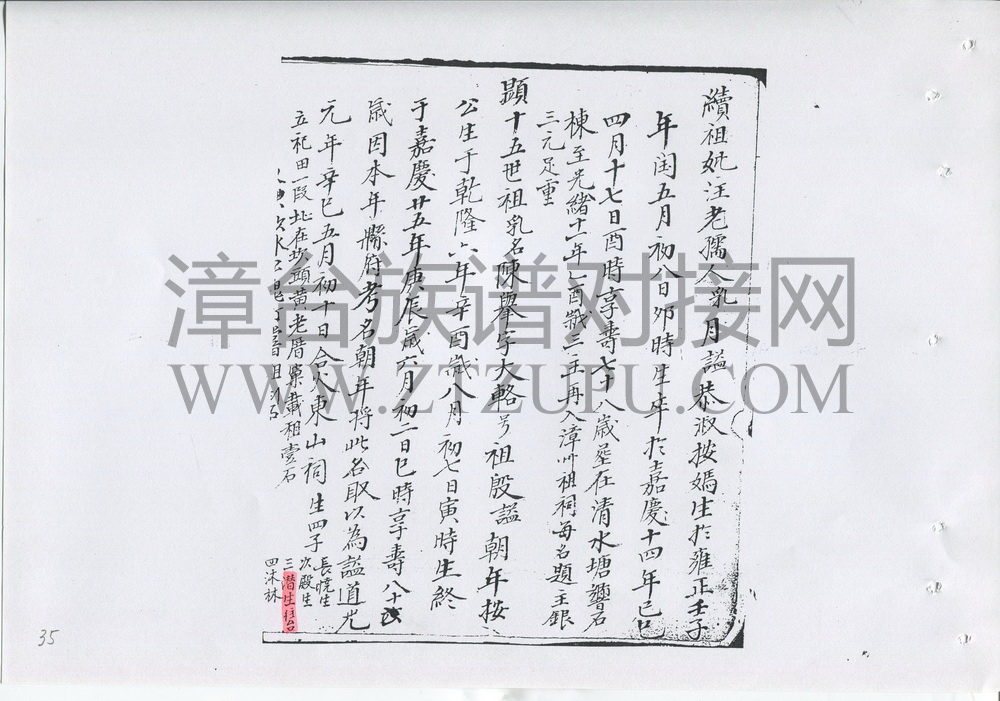 續祖妣汪老孺人乳月諡恭淑按媽生於雍正壬子
年闰五月初八日卯時生卒於嘉慶十四年己巳
四月十七日酉時享壽七十八歲塟在清水塘
棟至光緒十一年乙酉歲三主再入漳州祖祠每名題主銀
三元足重
顕十五世祖乳名陳舉字大輅号祖殷諡朝年按
公生于乾隆六年辛酉歲八月初七日寅時生終
于嘉慶廿五年庚辰歲六月初二日巳時享壽八十
歲因本年縣府考名朝年将此名取以為諡道光
元年辛巳五月初十日入東山祠生四子
長曉生
次殿生
三潛生
四沐林
立祀田一段址在坎頭黄老厝前載租壹石
漳台族谱对接网
WWW.ZTZUPU.COM
35